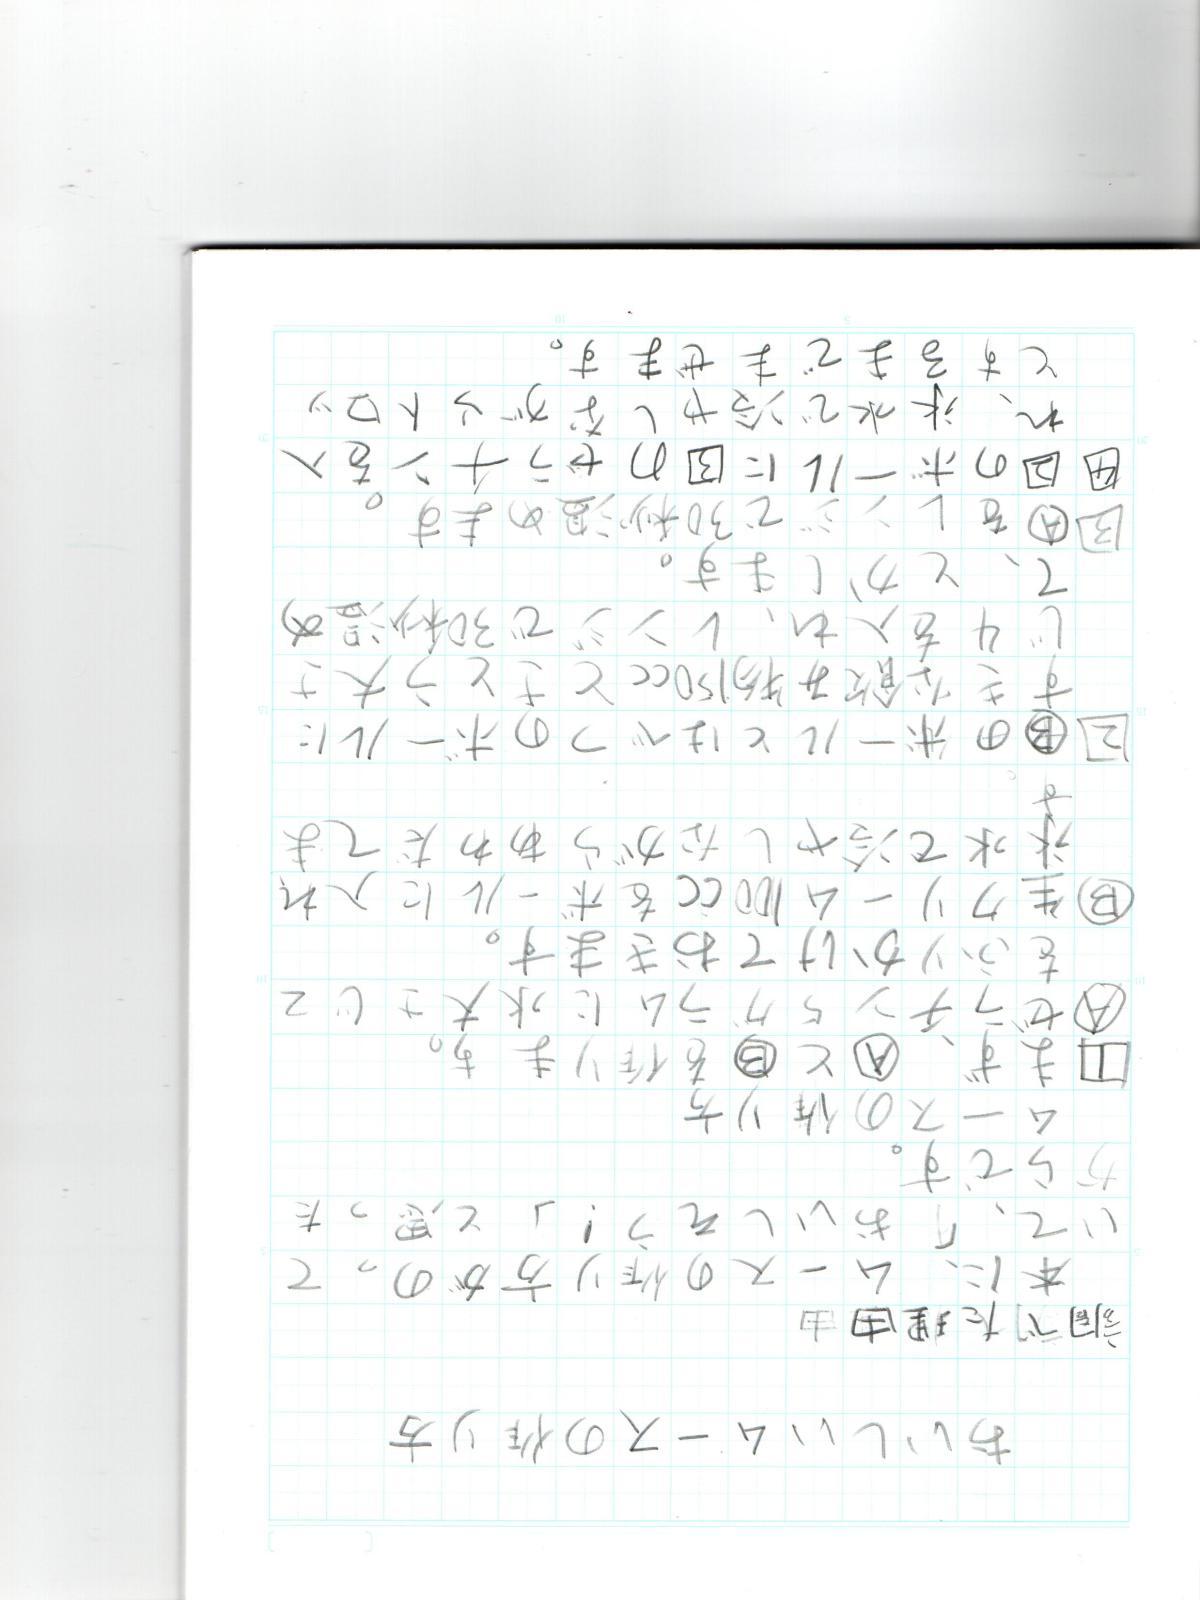 おいしいムースの作り方
調べた理由
本に、ムースの作り方がのって
いて、「おいしそう！」と思った
からです。
ムースの作り方
1 まず、ⒶとⒷを作ります。
Ⓐゼラチン5グラムに水大さじ2
をふりかけておきます。
Ⓑ生クリーム100ccをボールに入れ
氷水で冷やしながらあわだてま
す。
2 Ⓑのボールとはべつのボールに
すきな飲み物150ccとさとう大さ
じ4を入れ、レンジで30秒温め
て、とかします。
3 Ⓐをレンジで30秒温めます。
4 2のボールに3のゼラチンを入
れ、氷水で冷やしながらトロッ
とするまでまぜます。